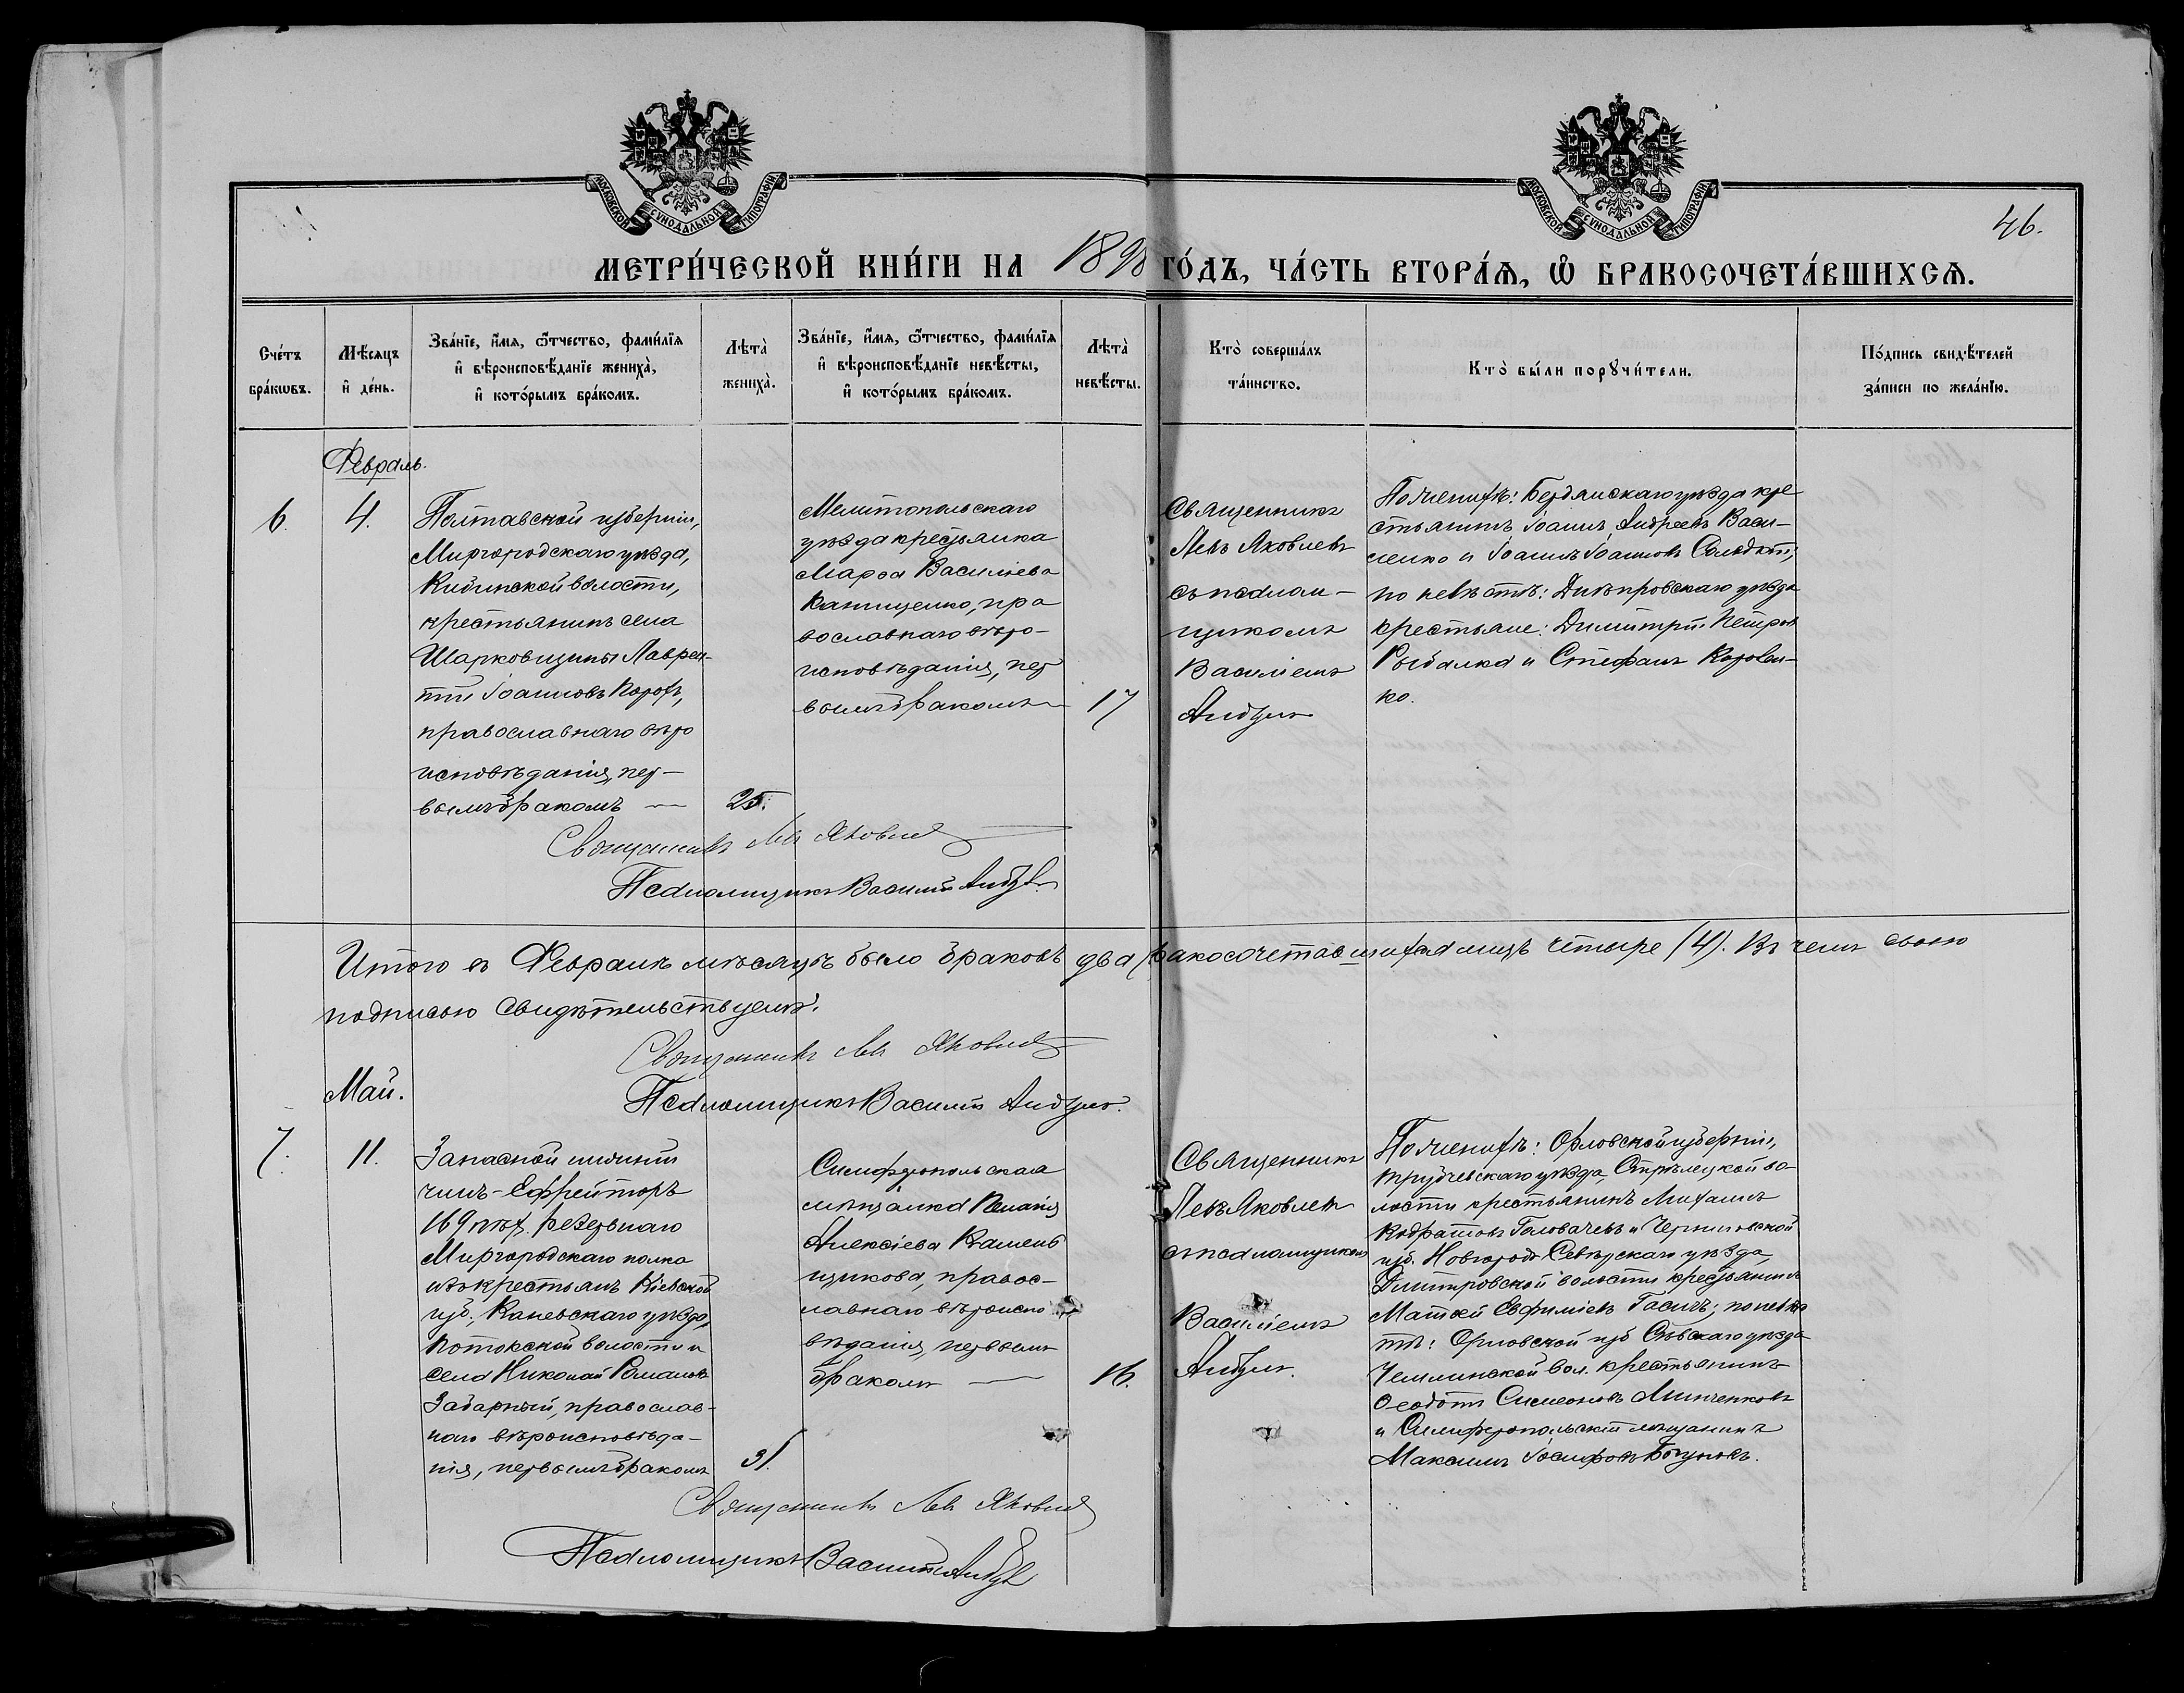 МОСКОВСКОЙ СѴНОДАЛЬНОЙ ТИПОГРАФІИ
МОСКОВСКОЙ СѴНОДАЛЬНОЙ ТИПОГРАФІИ
46.
МЕТРИ́ЧЕСКОЙ КНИ́ГИ НА 1898 ГО́ДЪ, ЧА́СТЬ ВТОРА́Я, Ѡ҆ БРАКОСОЧЕТА́ВШИХСѦ.
Сче́тъ
бра́кѡвъ.
Мѣ́сѧцъ
и҆ де́нь.
Зва́нїе, и҆́мѧ, ѻ҆́тчество, фами́лїѧ
и҆ вѣроисповѣ́данїе жениха̀,
и҆ кото́рымъ бра́комъ.
Лѣта̀
жениха̀.
Зва́нїе, и҆́мѧ, ѻ҆́тчество, фами́лїѧ
и҆ вѣроисповѣ́данїе невѣ́сты,
и҆ кото́рымъ бра́комъ.
Лѣта̀
невѣ́сты.
Кто̀ соверша́лъ
та́инство.
Кто̀ бы́ли порꙋчи́тели.
По́дпись свидѣ́телей
за́писи по жела́нїю.
Февраль.
6.
4.
Полтавской губерніи,
Миргородскаго уѣзда,
Кибинской волости,
крестьянинъ села
Шарковщины Лаврен-
тій Іоанновъ Корохъ,
православнаго вѣро
исповѣданія, пер-
вымъ бракомъ —
25.
Мелитопольскаго
уѣзда крестьянка
Марѳа Василіева
пра
вославнаго вѣро-
исповѣданія, пер
вымъ бракомъ —
17
Священникъ
Левъ Яковлевъ
съ псалом-
щикомъ
Василіемъ
По женихѣ: Бердянскаго уѣзда кре
стьянинъ Іоаннъ Андреевъ Васи-
ленко и Іоаннъ Іоанновъ
по невѣстѣ: Днѣпровскаго уѣзда
крестьяне: Димитрій Петровъ
Рыбалка и Стефанъ Коровен-
ко.
Священникъ Левъ Яковлевъ
Псаломщикъ Василій
Итого въ Февралѣ мѣсяцѣ было браковъ два бракосочетавшихся лицъ четыре (4). Въ чемъ своею
подписью свидѣтельствуемъ:
Священникъ Левъ Яковлевъ
Псаломщикъ Василій
Май.
7.
11.
Запасной нижній
чинъ - Ефрейторъ
169 пѣх. резервнаго
Миргородскаго полка
изъ крестьянъ Кіевской
губ., Каневскаго уѣзда,
Потокской волости и
села Николай Романовъ
Забарный, православ-
наго вѣроисповѣда-
нія, первымъ бракомъ
31.
Симферопольская
мѣщанка Пелагія
Алексіева Камень
щикова, правос-
лавнаго вѣроиспо
вѣданія, первымъ
бракомъ —
16.
Священникъ
Левъ Яковлевъ
съ псаломщикомъ
Василіемъ
По женихѣ: Орловской губерніи,
Трубчевскаго уѣзда, Стрѣлецкой во-
лости крестьянинъ Михаилъ
Кодратовъ Головачевъ и Черниговской
губ. Новгородъ Сѣверскаго уѣзда,
Дмитровской волости крестьянинъ
Матѳей Евфиміевъ Гасичъ; по невѣс
тѣ: Орловской губ Сѣвскаго уѣзда
Чемлинской вол. крестьянинъ
Ѳеодотъ Симеоновъ Минченковъ
и Симферопольскій мѣщанинъ
Максимъ Іосифовъ Богуновъ.
Священникъ Левъ Яковлевъ
Псаломщикъ Василій